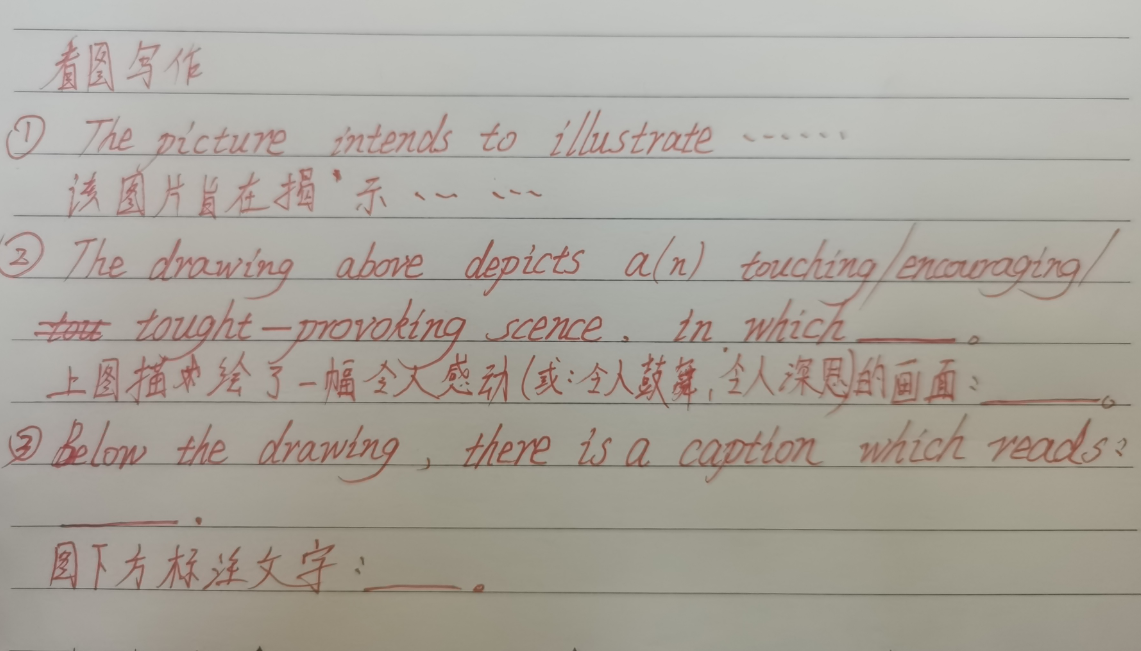 看图写作
① The picture intends to illustrate ......
该图片旨在揭示 ... ...
② The drawing above depicts a(n) touching/encouraging/
tought-provoking scence, in which ____。
上图描绘了一幅令人感动(或:令人鼓舞,令人深思)的画面:____。
③ Below the drawing, there is a caption which reads:
____.
图下方标注文字:____。